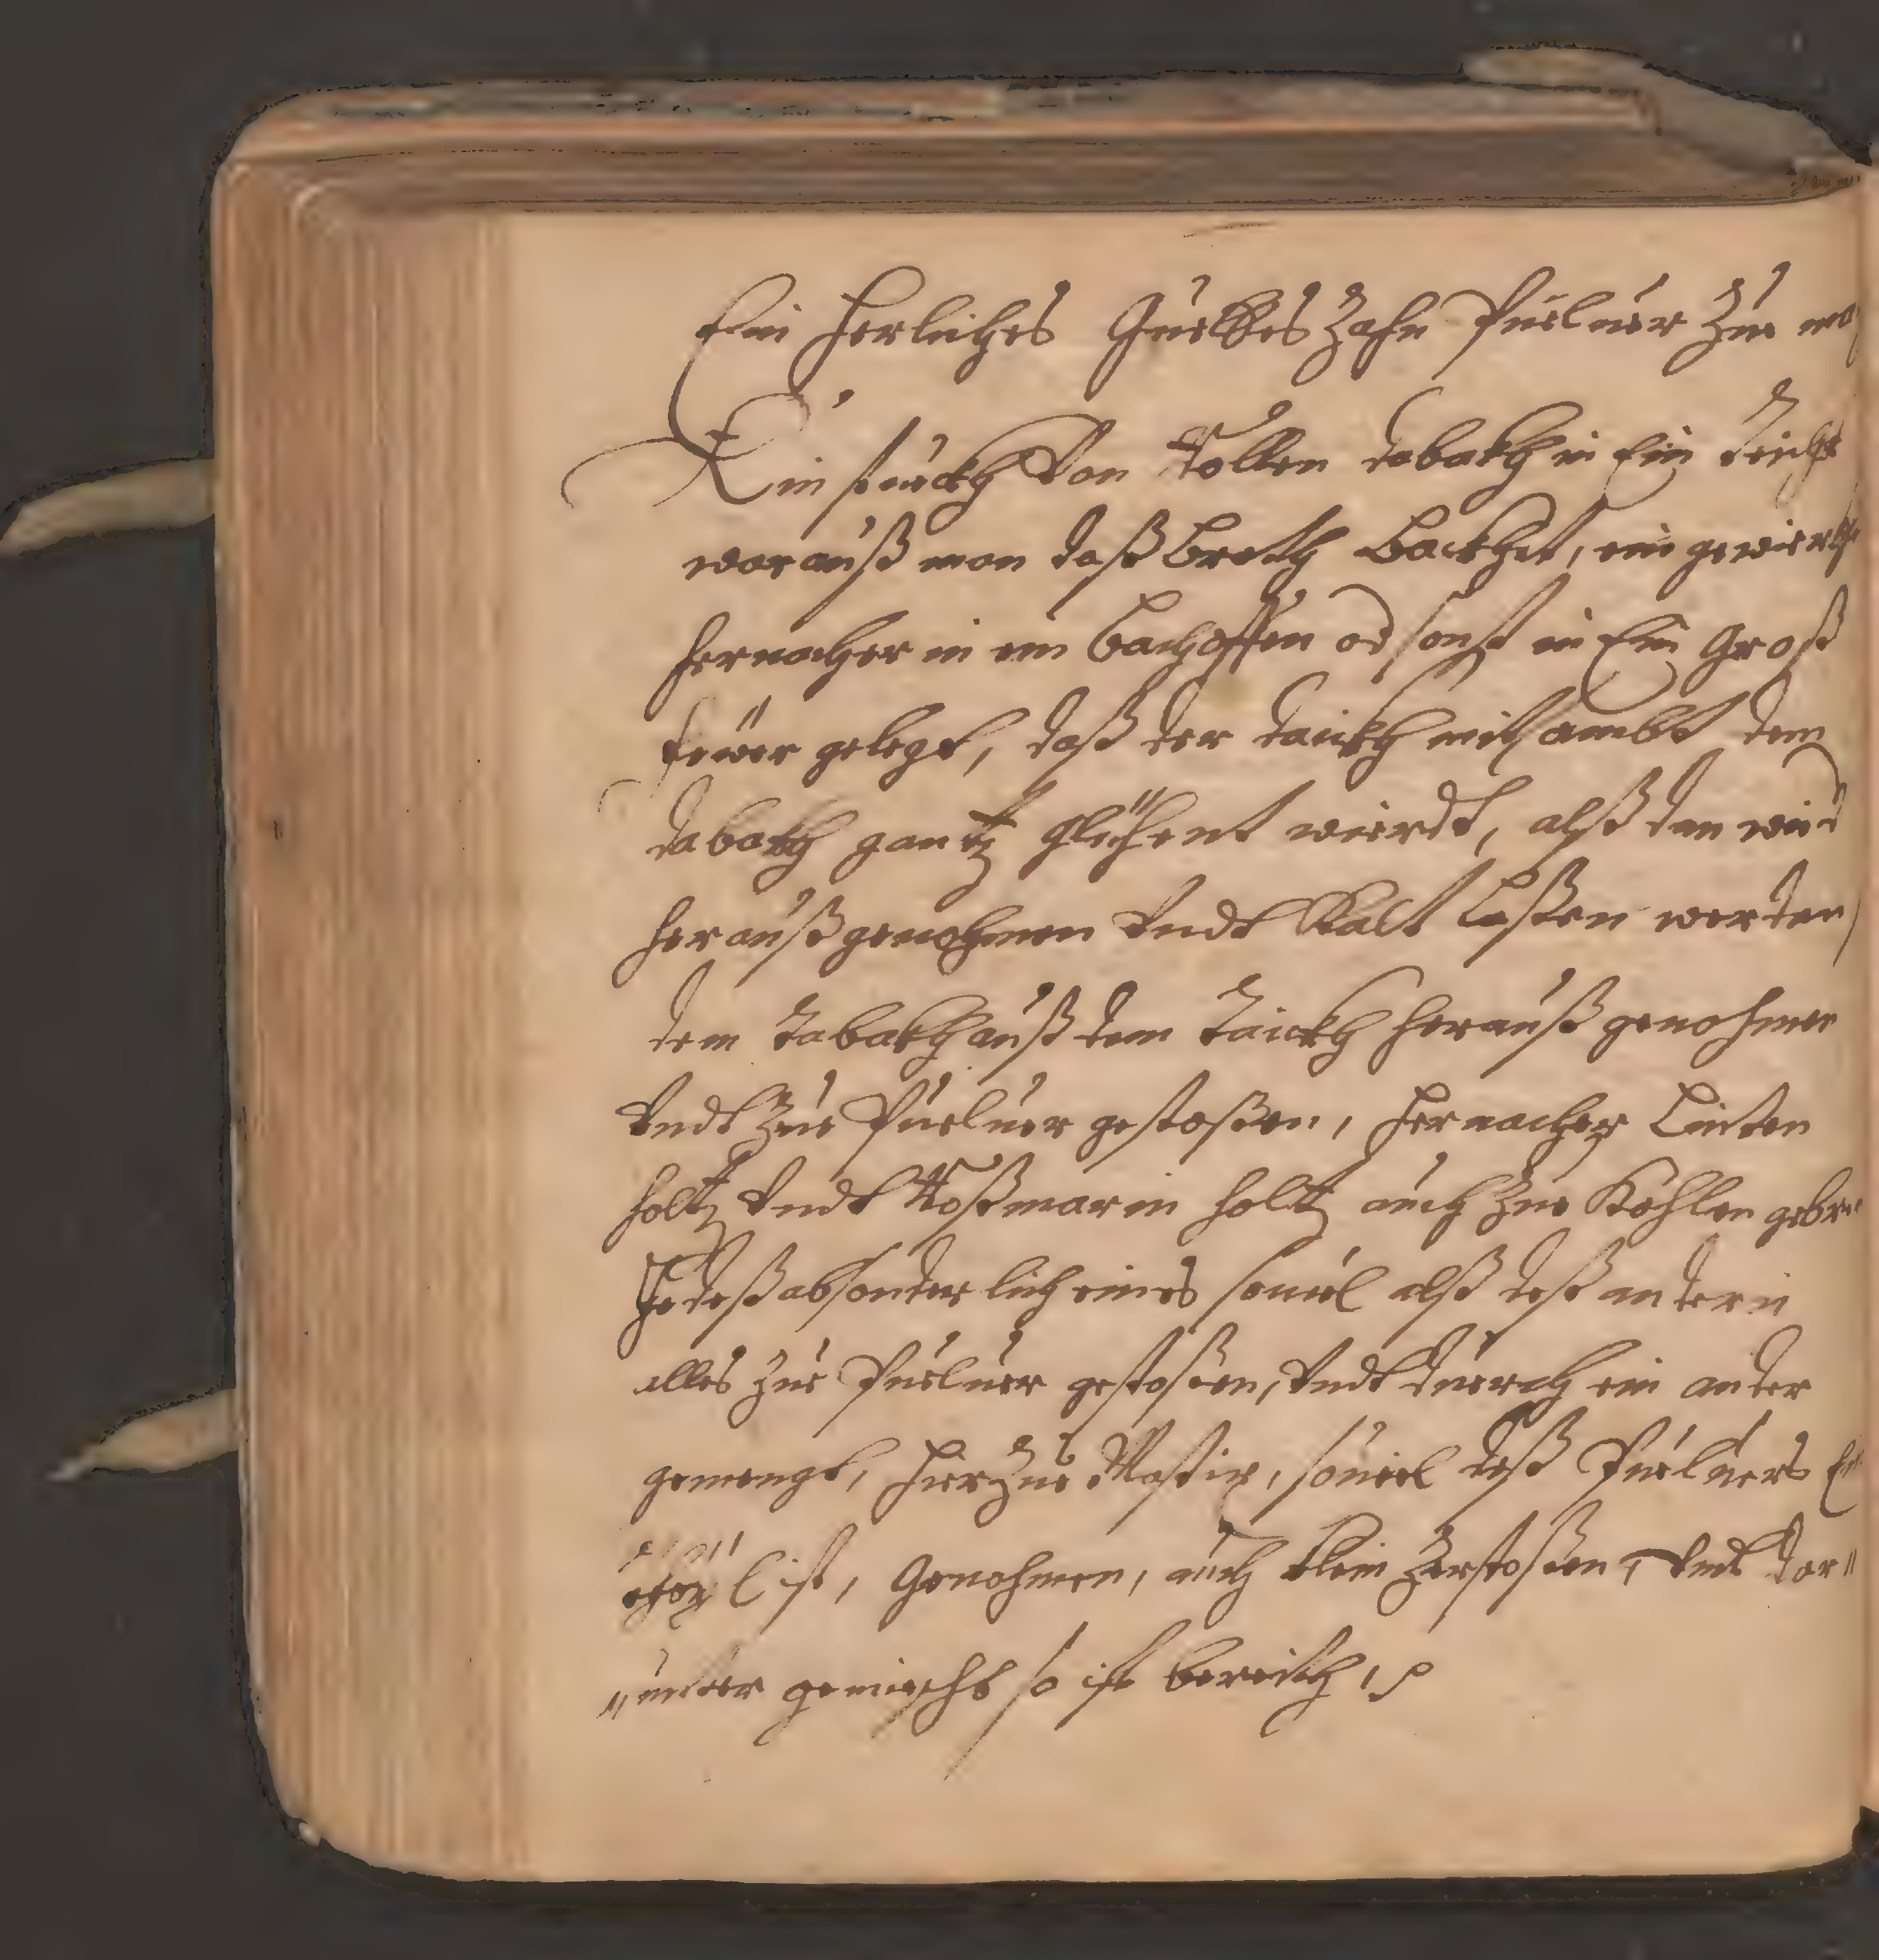 Ein herliches Guettes Zahn Puluer Zue ma
Ein stuckh Von Rollen tabakh in Ein Teich
warauß man daß broth backhet, ein gewierch
hernacher in ein bachoffen od sonst in Ein Groß
fewer gelegt, daß der taickh mitsambt dem
tabakh gantz glüehent wierdt, alß dan wird
herauß genohmen Vndt Kalt laßen werden,
dem tabakh auß dem taickh herauß genohmen
Vndt Zue Puluer gestoßen, hernacher Linten
holtz Vndt Roßmarin holtz auch Zue Kohlen gebr
Jedeß absonderlich eines souiel alß deß andern
alles Zue Puluer gestoßen, Vndt duerch ein ander
gemengt, hierZue Mastix, souiel deß Puluers
ist, Genohmen, auch klein Zerstoßen, Vndt dar"
"unter gemischt so ist bereith,